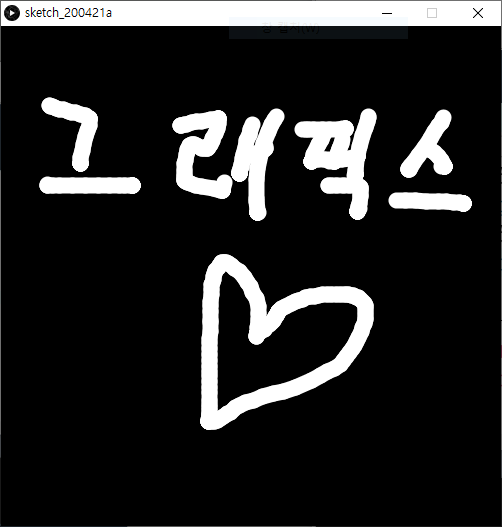 sketch_200421a
그래픽스